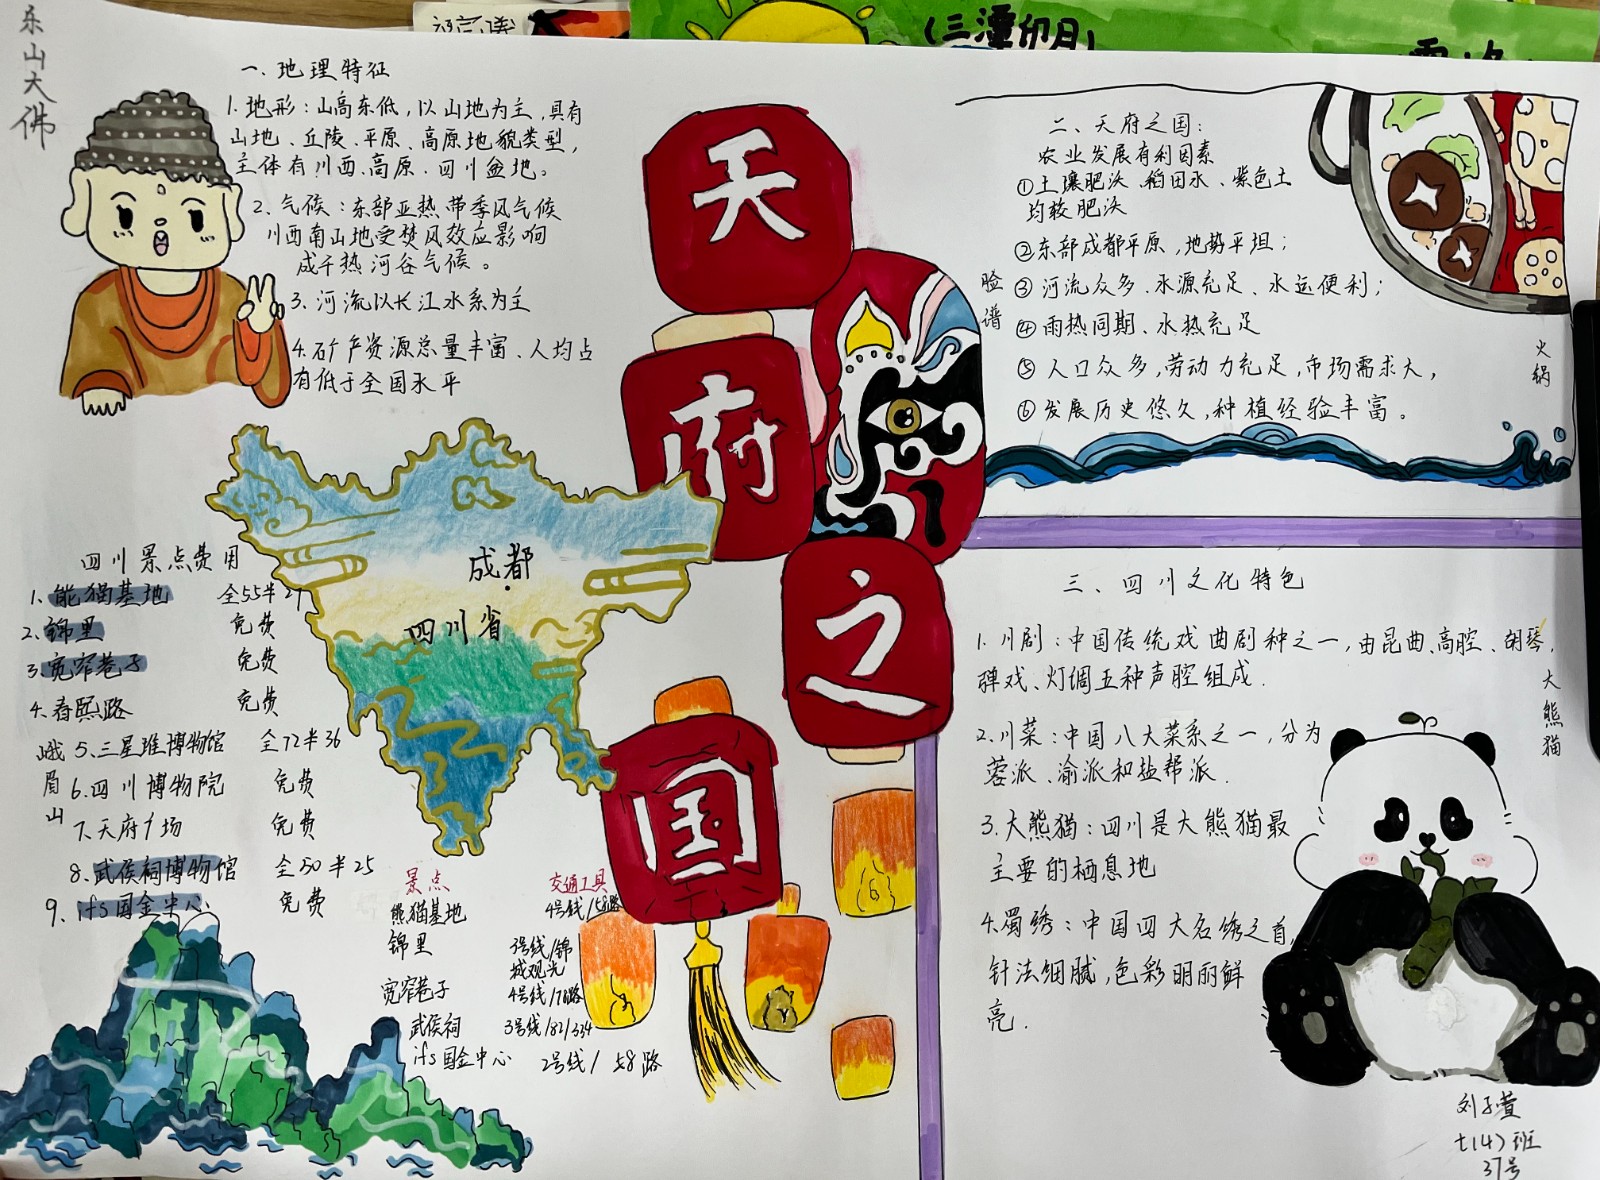 乐山大佛
(三潭印月)
一、地理特征
1.地形：山高东低，以山地为主，具有
山地、丘陵、平原、高原地貌类型，
主体有川西、高原、四川盆地。
2、气候：东部亚热带季风气候
川西南山地受焚风效应影响
成干热河谷气候。
3、河流以长江水系为主
4.矿产资源总量丰富、人均占
有低于全国水平
天
府
之
国
脸谱
二、天府之国：
农业发展有利因素
①土壤肥沃、稻田水、紫色土
均较肥沃
②东部成都平原，地势平坦；
③河流众多、水源充足、水运便利；
④雨热同期、水热充足
⑤人口众多，劳动力充足，市场需求大，
⑥发展历史悠久，种植经验丰富。
火锅
成都
四川省
四川景点费用
1、熊猫基地 全55半27
2、锦里 免费
3、宽窄巷子 免费
4、春熙路 免费
5、三星堆博物馆 全72半36
6.四川博物院 免费
7、天府广场 免费
8.武侯祠博物馆 全50半25
9、ifs国金中心 免费
峨眉山
景点 交通工具
熊猫基地 4号线/58路
锦里 3号线/锦
城观光
宽窄巷子 4号线/76路
武侯祠 3号线/82/334
ifs国金中心 2号线/58路
三、四川文化特色
1.川剧：中国传统戏曲剧种之一，由昆曲、高腔、胡琴，
弹戏、灯调五种声腔组成.
2.川菜：中国八大菜系之一，分为
蓉派、渝派和盐帮派.
3.大熊猫：四川是大熊猫最
主要的栖息地
4.蜀绣：中国四大名绣之首，
针法细腻，色彩明丽鲜
亮.
大熊猫
刘子萱
七(4)班
37号